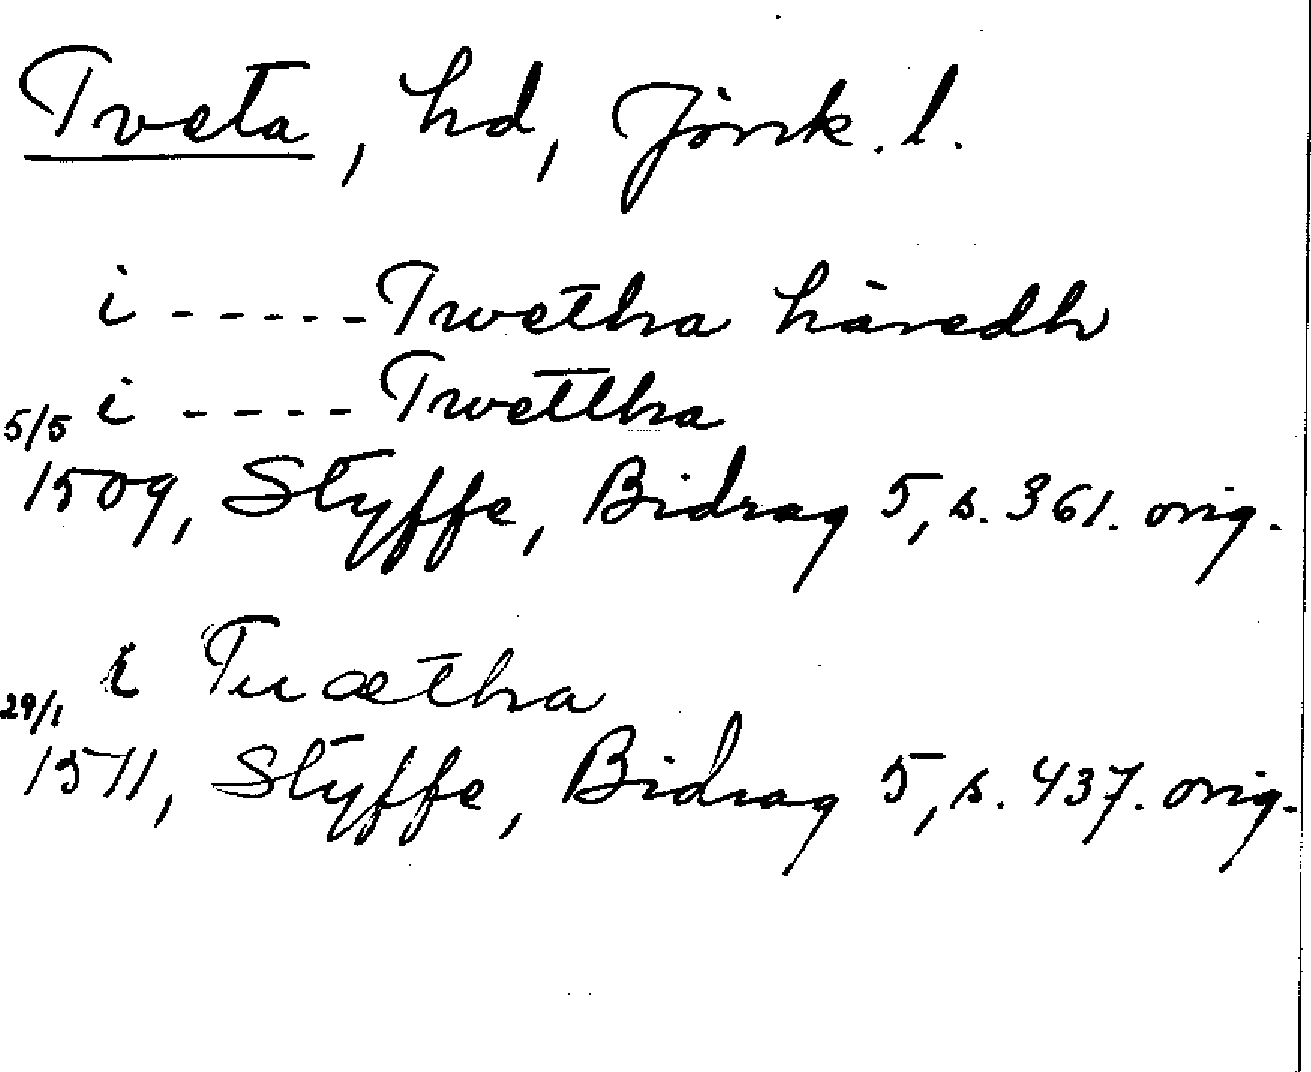 Tveta, hd, Jönk. l.
i ----- Twetha häredh
5/5 i ---- Twettha
1509, Styffe, Bidrag 5, s. 361. orig.
i Tuætha
29/1
1511, Styffe, Bidrag 5, s. 437. orig.